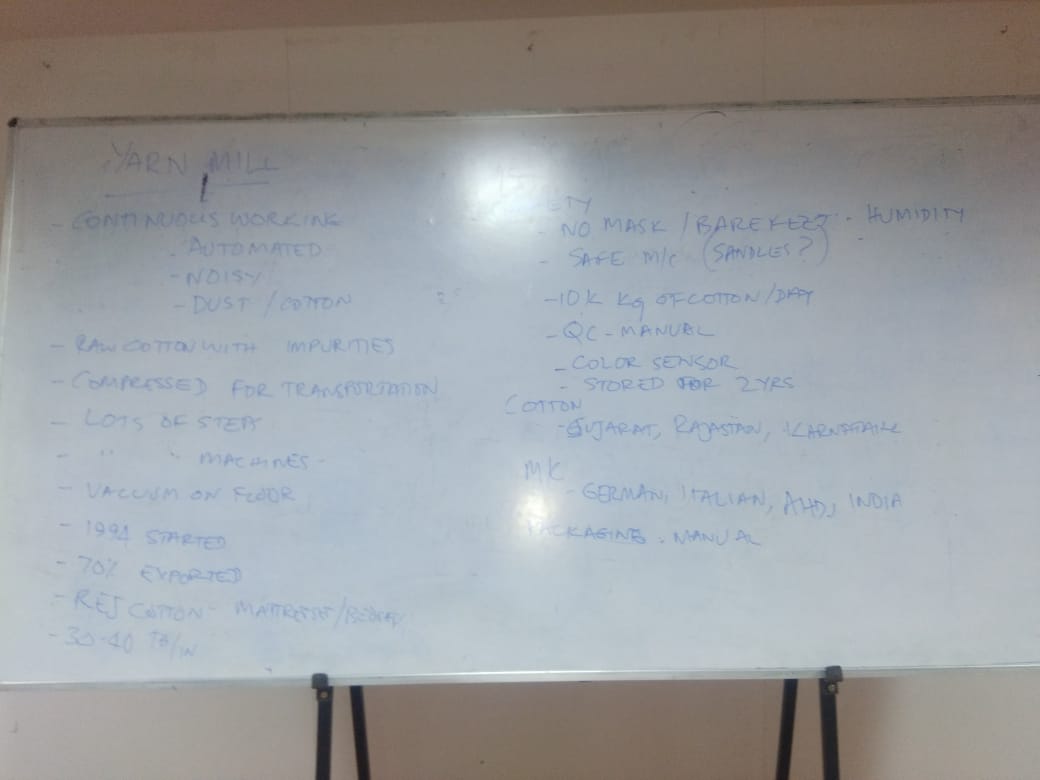 YARN MILL
- CONTINUOUS WORKING
- AUTOMATED
- NOISY
- DUST / COTTON
- RAW COTTON WITH IMPURITIES
- COMPRESSED FOR TRANSPORTATION
- LOTS OF STEPS
- " " MACHINES -
- VACCUM ON FLOOR
- 1994 STARTED
- 70% EXPORTED
- REJ COTTON -
- 30-40
ETY
- NO MASK / BAREFEET - HUMIDITY
- SAFE M/C (SANDLES?)
- 10K Kg OF COTTON / DAY
- QC - MANUAL
- COLOR SENSOR
- STORED FOR 2 YRS
COTTON
- GUJARAT, RAJASTAN,
M/C
- GERMAN, ITALIAN, AHD, INDIA
PACKAGING - MANUAL